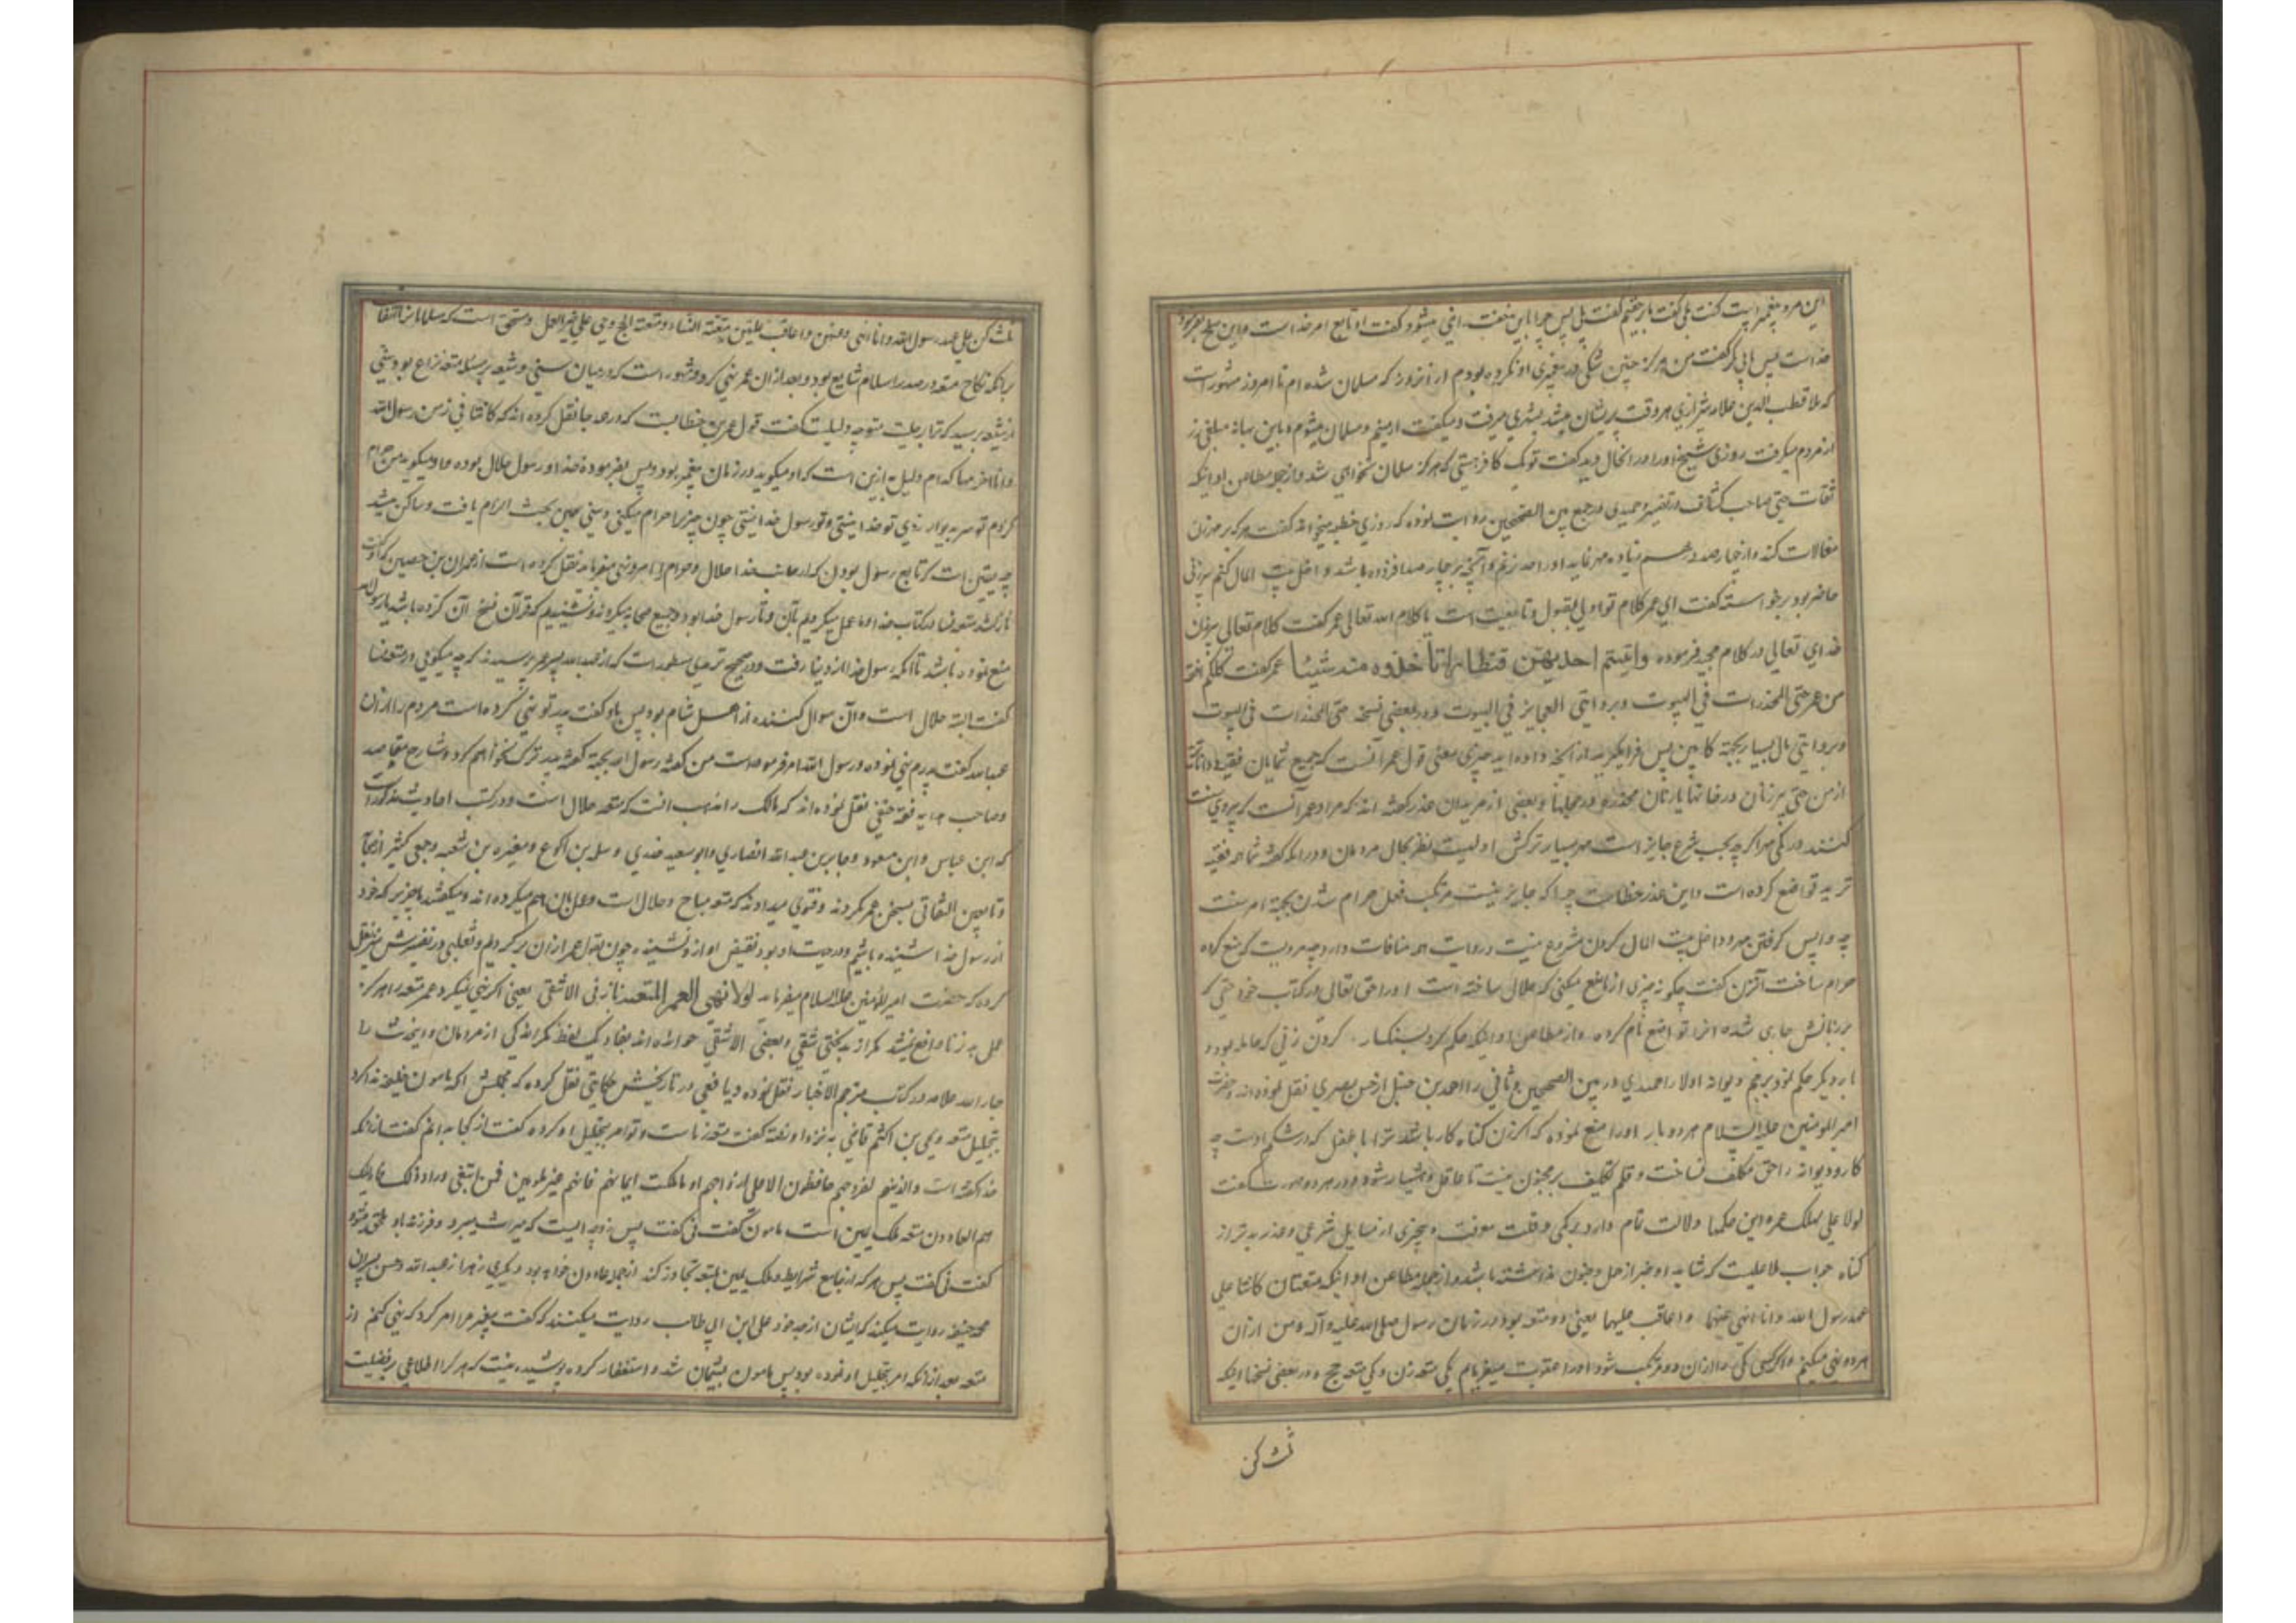 این مرد پیغمبر است گفت بلی گفت بار حقیم گفت بلی پس چرا باین منقصت راضی میشود گفت او تابع امر خداست و این صلح بفرموده
خداست پس ابی بکر گفت من هرگز چنین شکی در پیغمبری او نکرده بودم از آنروز که مسلمان شده ام تا امروز مشهور است
که ملا قطب الدین علامه شیرازی هر وقت پریشان میشد بشهری میرفت و میگفت ارمنیم و مسلمان میشوم و باین بهانه مبلغی زر
از مردم میگرفت روزی شیخ او را در انحال دید گفت تو یک کافرستی که هرگز مسلمان نخواهی شد و از جمله مطاعن او اینکه
ثقات حتی صاحب کشاف در تفسیر و حمیدی در جمع بین الصحیحین روایت نموده که روزی خطبه میخواند گفت هر که بر مهر زن
مغالات کند و از چهارصد درهم زیاده مهر نماید او را حد زنم و آنچه بر چهار صد افزوده باشد داخل بیت المال کنم پیرزنی
حاضر بود برخواسته گفت ای عمر کلام تو اولی بقبول و تابعیت است یا کلام الله تعالی عمر گفت کلام تعالی پیرزن
خدای تعالی در کلام مجید فرموده وآتیتم احدیهن قنطارا فلا تأخذوه منه شیئا عمر گفت کلکم افقه
من عمر حتی المخدرات فی البیوت و بروایتی العجایز فی البیوت و در بعضی نسخه حتی المخدرات فی البیوت
و بروایتی مال بسیار بجهة کابین پس فرا مگیرید از آنچه داده اید چیزی معنی قول عمر آنست که جمیع شمایان فقیه و داناترند
از من حتی پیرزنان در خانها یا زنان مخدره در حجلها و بعضی از مریدان عذر گفته اند که مراد عمر آنست که پیروی سنت
کنند در کمی مهر اگر چه بحسب شرع جایز است مهر بسیار ترکش اولیست نظر بحال مردمان و در آنکه گفته شما همه فقیه
ترید تواضع کرده است و این عذر خطاست چرا که جایز نیست مرتکب فعل حرام شدن بجهة امر سنت
چه واپس گرفتن مهر و داخل بیت المال کردن مشروع نیست و روایت هم منافات دارد چه مرویست که منع کرده
حرام ساخت آنزن گفت چگونه چیزی از ما منع میکنی که حلال ساخته است او را حق تعالی در کتاب خود حتی که
بر زبانش جاری شده انرا تواضع نام کرده و از مطاعن او اینکه حکم کرد بسنکسار کردن زنی که حامله بود و
بار دیگر حکم نمود برجم دیوانه اولا را حمیدی در بین الصحیحین و ثانی را احمد بن حنبل از حسن بصری نقل نموده اند و حضرت
امیر المومنین علیه السلام هر دو بار او را منع نموده که اگر زن گناه کار باشد ترا با طفل که در شکم اوست چه
کار و دیوانه را حق مکلف نساخت و قلم تکلیف بر مجنون نیست تا عاقل و هشیار شود و در هر دو صورت گفت
لولا علی لهلک عمر و این حکمها دلالت تام دارد بر کمی وقلت معرفت و بیخبری از مسایل شرعی و عذر بدتر از
گناه جواب ملا علیست که شاید او خبر از حمل و جنون نداشته باشد و از جمله مطاعن او اینکه متعتان کانتا علی
عهد رسول الله و انا انهی عنهما و اعاقب علیهما یعنی دو متعه بود در زمان رسول صلی الله علیه و آله و من از ان
هر دو نهی میکنم و اگر کسی یکی را از ان دو مرتکب شود او را عقوبت میفرمایم یکی متعه زن و یکی متعه حج و در بعضی نسخها اینکه
ثلث کن
ثلث کن علی عهد رسول الله و انا انهی عنهن و اعاقب علیهن متعة النساء و متعة الحج و حی علی خیر العمل و متحقق است که مسلمانان اتفاق
برآنکه نکاح متعه در صدر اسلام شایع بود و بعد از ان عمر نهی کرد و مشهور است که در میان سنی و شیعه بر مسئله متعه نزاع بود سنی
از شیعه پرسید که ترا بر حلیت متعه چه دلیلست گفت قول عمر بن خطابست که در همه جا نقل کرده اند که کانتا فی زمن رسول الله
و انا احرمهما کدام دلیل به ازین است که او میگوید در زمان پیغمبر بود و پس بفرموده خدا و رسول حلال بوده و او میگوید من حرام
کردم تو سر بدیوار زدی تو خدا نیستی و تو رسول خدا نیستی چون چیز را حرام میکنی و سنی بهمین بحث الزام یافت و ساکن میشد
چه یقین است که تابع رسول بودن که از جانب خدا حلال و حرام و امر و نهی میفرماید نقل کرده است از عمران بن حصین که او گفت
نازل شد متعه نساء در کتاب خدا و ما عمل میکردیم بآن و تا رسول خدا بود و جمیع صحابه میکردند و نشنیدیم که قرآن نسخ آن کرده باشد یا رسول الله
منع نموده باشد تا آنکه رسول خدا از دنیا رفت و در صحیح ترمذی مسطور است که از عبدالله پسر عمر پرسیدند که چه میگویی در متعه نسا
گفت البته حلال است و آن سوال کننده از اهل شام بود پس باو گفت پدر تو نهی کرده است مردم را از ان
عبدالله گفت پدرم نهی نموده و رسول الله امر فرموده است من گفته رسول را بجهة گفته پدر ترک نخواهم کرد و شارح مقاصد
و صاحب هدایه فقه حنفی نقل نموده اند که مالک را مذهب انست که متعه حلال است و در کتب احادیث مذکور است
که ابن عباس و ابن مسعود و جابر بن عبدالله انصاری و ابو سعید خدری و سلمه بن اکوع و مغیره بن شعبه و جمعی کثیر از صحابه
و تابعین التفاتی بسخن عمر نکردند و فتوی میدادند که متعه مباح و حلال است و عمل بان هم میکرده اند و میگفتند ما چیزی که خود
از رسول خدا شنیده باشیم و در حیات او بود نقیض او از و نشنیده چون بقول عمر از ان برگردیم و ثعلبی در تفسیرش نیز نقل
کرده که حضرت امیر المؤمنین علیه السلام میفرماید لولا نهی العمر المتعه ما زنی الا شقی یعنی اگر نهی نمیکرد عمر متعه را هرگز
عمل به زنا واقع نمیشد مگر از بدبختی شقی و بعضی الا شقی خوانده اند بفاء یک لفظ مگر اندکی از مردمان و اینحدیث را
جار الله علامه در کتاب مترجم الاخبار نقل نموده و یافعی در تاریخش حکایتی نقل کرده که مجملش آنکه مامون خلیفه ندا کرد
بتحلیل متعه و یحیی بن اکثم قاضی به نزد او رفته گفت متعه زناست و تو امر بتحلیل او کرده گفت از کجا میدانم گفت از انکه
خدا گفته است والذینهم لفروجهم حافظون الا علی ازواجهم او ما ملکت ایمانهم فانهم غیر ملومین فمن ابتغی وراء ذلک فاولئک
هم العادون متعه ملک یمین است مامون گفت نی گفت پس زوجه ایست که میراث میبرد و فرزند باو ملحق میشود
گفت نی گفت پس هر که از تابع شرایط و ملک یمین بمتعه تجاوز کند از جمله عادون خواهد بود و دیگری زهری از عبدالله و حسن پسران
محمد حنفیه روایت میکند که ایشان از جد خود علی ابن ابی طالب روایت میکنند که گفت پیغمبر مرا امر کرد که نهی کنم از
متعه بعد از انکه امر بتحلیل او نموده بود پس مامون پشیمان شد و استغفار کرده پوشیده نیست که هر کرا اطلاعی بر فضیلت